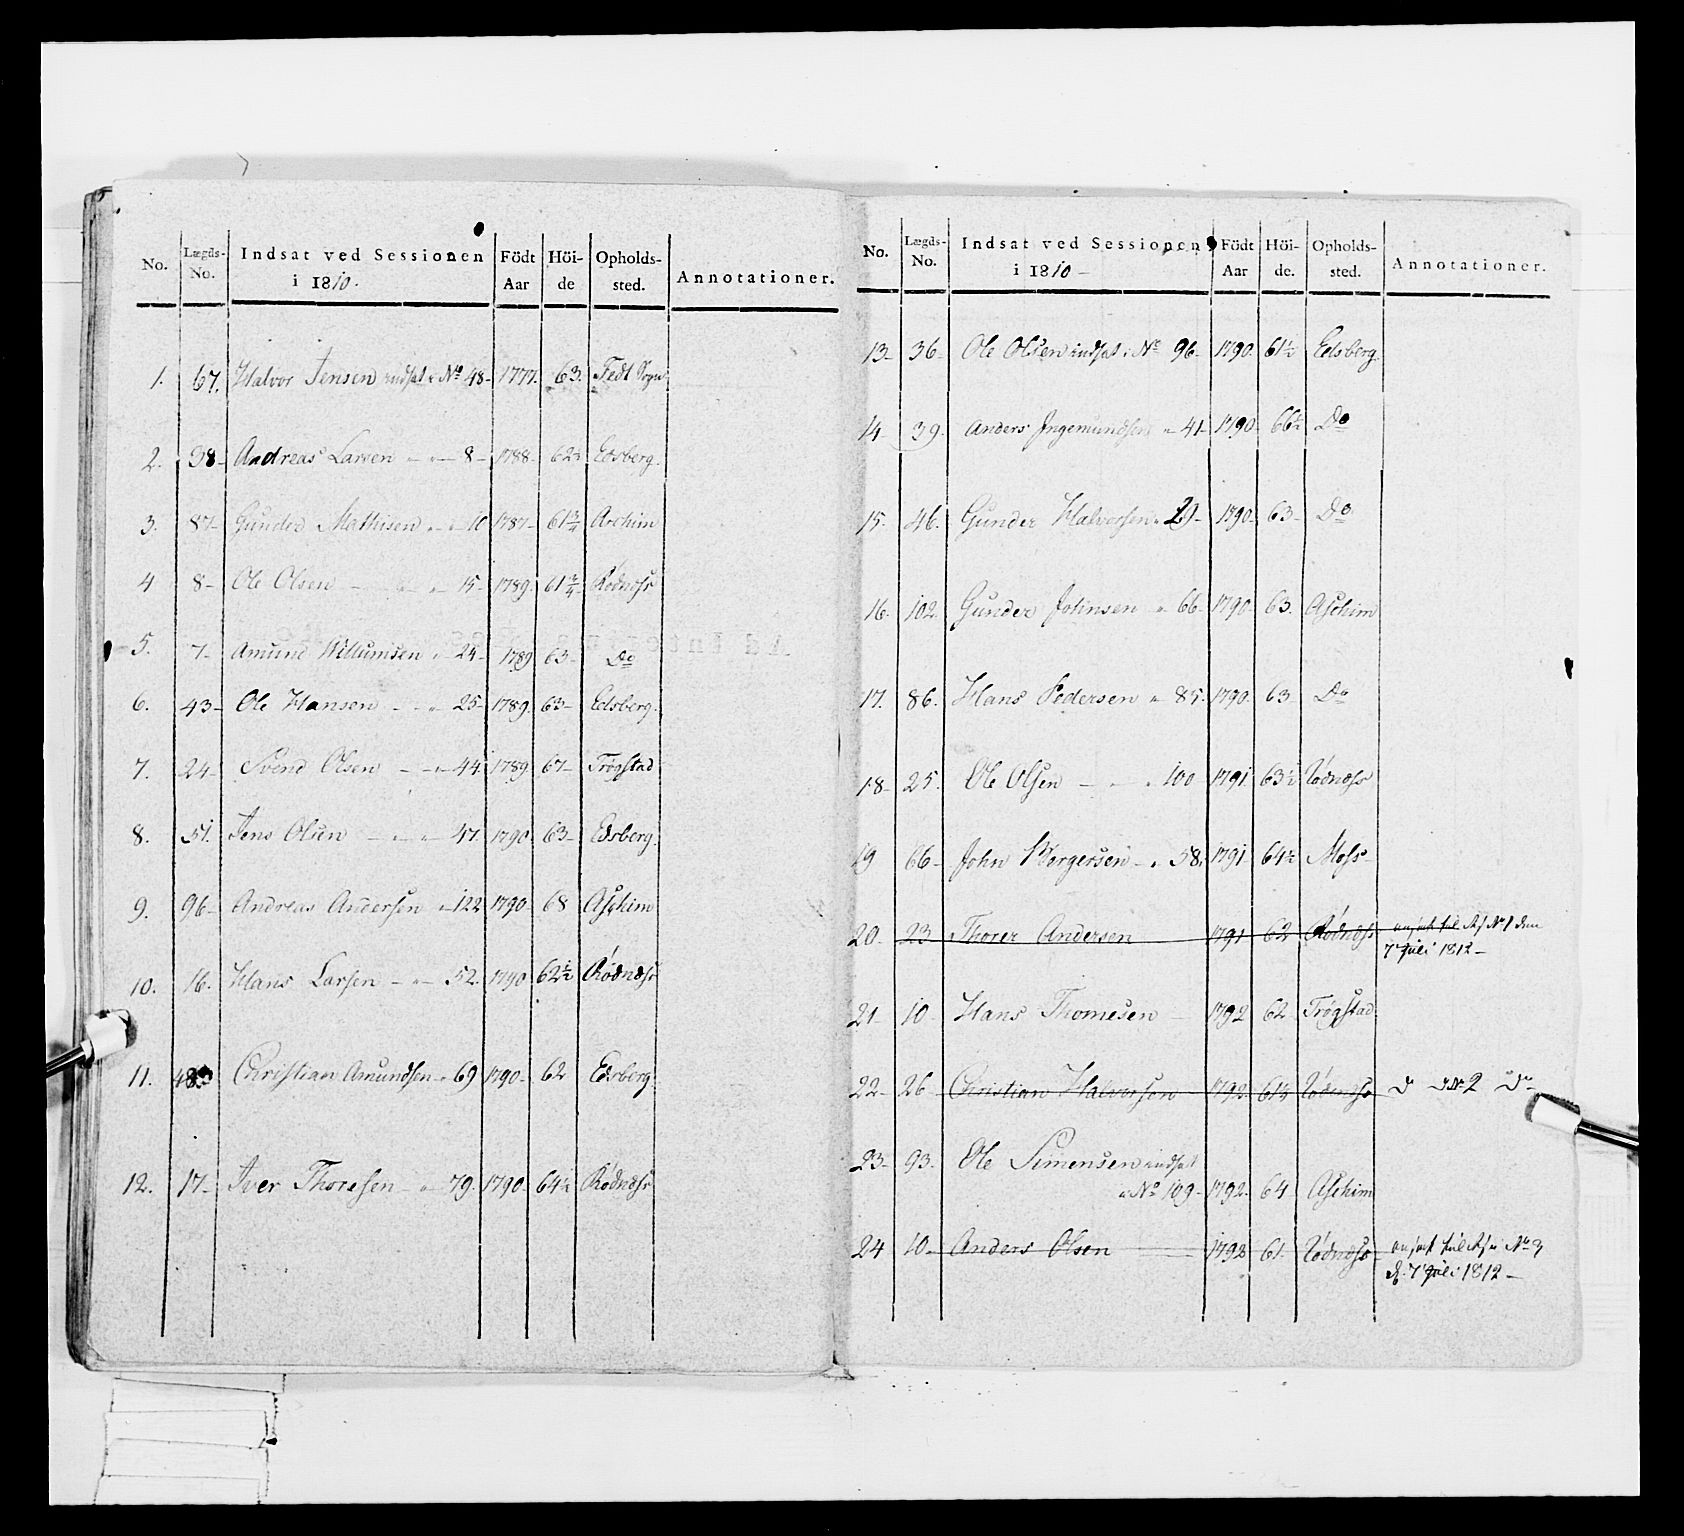 No. Lægds-No. Indsat ved Sessionen i 1810. Födt Aar Höi-de Opholds-sted. Annotationer.
1. 67. Halvor Jensen indsat i No 48- 1777. 63. Sogn
2. 38- Andreas Larsen 8- 1788- Edsberg.
3. 87- Gunder Mathisen 10 1787- 61¾ Aschim
4 8- Ole Olsen 15- 1789. 61¾ Rødnæss
5. 7- Amund Willumsen 24- 1789 63- Do
6. 43- Ole Hansen 25- 1789. 63- Edsberg.
7. 24- Svend Olsen 44 1789 67- Trögstad
8. 51. Jens Olsen 47. 1790. 63- Edsberg.
9. 96- Andreas Andersen 122 1790- 68 Aschim
10. 16. Hans Larsen 52. 1790 62½ Rødnæss
11. Christian Amundsen 69 1790- 62 Edsberg
12. 17- Iver Thoresen 79. 1790- 64½ Rødnæss
No. Lægds-No. Indsat ved Sessionen i 1810- Födt Aar Höi-de. Opholds-sted. Annotationer.
13- 36- Ole Olsen indsat i No 96- 1790. 61½ Edsberg.
14- 39. Anders Ingemundsen 41- 1790- 66½ Do
15- 46. Gunder Halvorsen 29- 1790- 63- Do
16. 102. Gunder Johnsen 66- 1790. 63. Aschim
17. 86. Hans Pedersen 85. 1790. 63 Do
18- 25. Ole Olsen 100 1791 63½ Rødnæss
19 66- John Børgersen 58. 1791 64½ Moss-
20. 23 Thorer Andersen 1791 62 Rødnæss ansat til No 1 den
7 Juli 1812-
21 10 Hans Thomesen 1792 62 Trögstad
22- 26- Christian Halvorsen 1792 61½ Rødnæss No 2 Do
23- 93. Ole Simensen indsat
i No 109- 1792- 64 Aschim
24 10- Anders Olsen 1792 61. Rødnæss ansat til No 3
d. 7 Juli 1812-